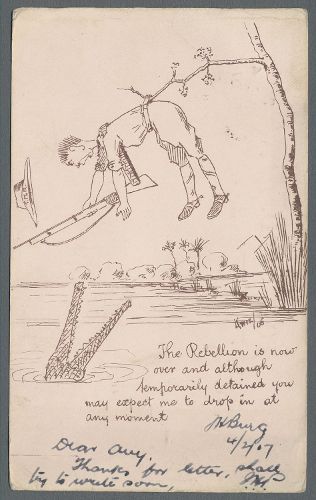 The Rebellion is now
over and although
temporarily detained you
may expect me to drop in at
any moment
4/2/07
Dear
Thanks for letter, shall
try to write soon,